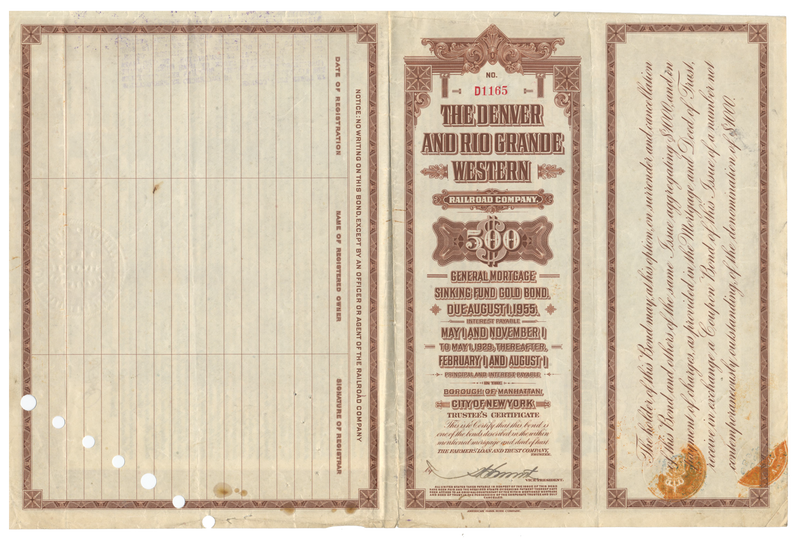 DATE OF REGISTRATION
NAME OF REGISTERED OWNER
SIGNATURE OF REGISTRAR
NOTICE: NO WRITING ON THIS BOND, EXCEPT BY AN OFFICER OR AGENT OF THE RAILROAD COMPANY
NO.
D1165
THE DENVER
AND RIO GRANDE
WESTERN
RAILROAD COMPANY.
$500
GENERAL MORTGAGE
SINKING FUND GOLD BOND,
DUE AUGUST 1, 1955,
INTEREST PAYABLE
MAY 1 AND NOVEMBER 1
TO MAY 1, 1929, THEREAFTER,
FEBRUARY 1 AND AUGUST 1
PRINCIPAL AND INTEREST PAYABLE
IN THE
BOROUGH OF MANHATTAN,
CITY OF NEW YORK.
TRUSTEE'S CERTIFICATE
This is to Certify that this bond is
one of the bonds described in the within
mentioned mortgage and deed of trust.
THE FARMERS' LOAN AND TRUST COMPANY,
TRUSTEE.
VICE PRESIDENT.
The holder of this Bond may, at his option, on surrender and cancellation
of this Bond and others of the same Issue aggregating $1000 and on
payment of charges, as provided in the Mortgage and Deed of Trust,
receive in exchange a Coupon Bond of this Issue of a number not
contemporaneously outstanding, of the denomination of $1000.